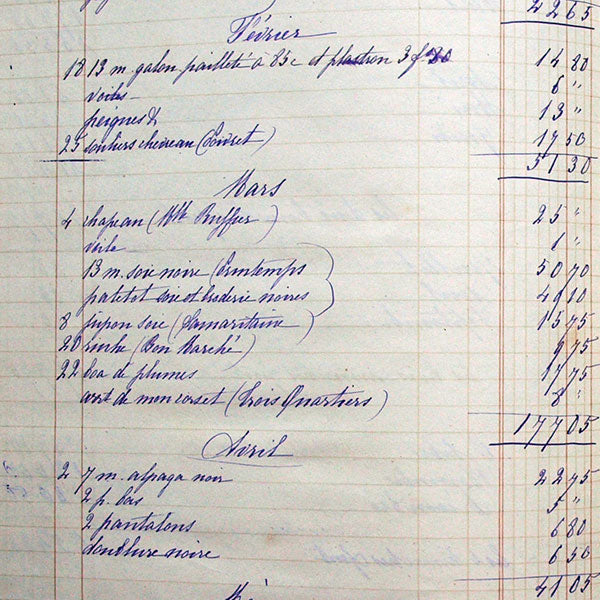 4265
Février
18 13 m. galon pailleté à 85c et plastron 3f 30 14 80
voiles 6 "
peignes & 13 "
25 souliers chevreau (Louvet) 17 50
51 30
Mars
4 chapeau (Mlle Ruffier) 25 "
voile 1 "
13 m. soie noire (Printemps) 50 70
et broderie noires 49 10
8 jupon soie (Samaritaine) 15 75
20 ruche (Bon Marché) 9 75
22 boa de plumes 17 75
de mon corset (Trois Quartiers) 8 "
177 05
Avril
2 7 m. alpaga noir 22 75
2 p. bas 5 "
2 pantalons 6 80
doublure noire 6 50
41 05